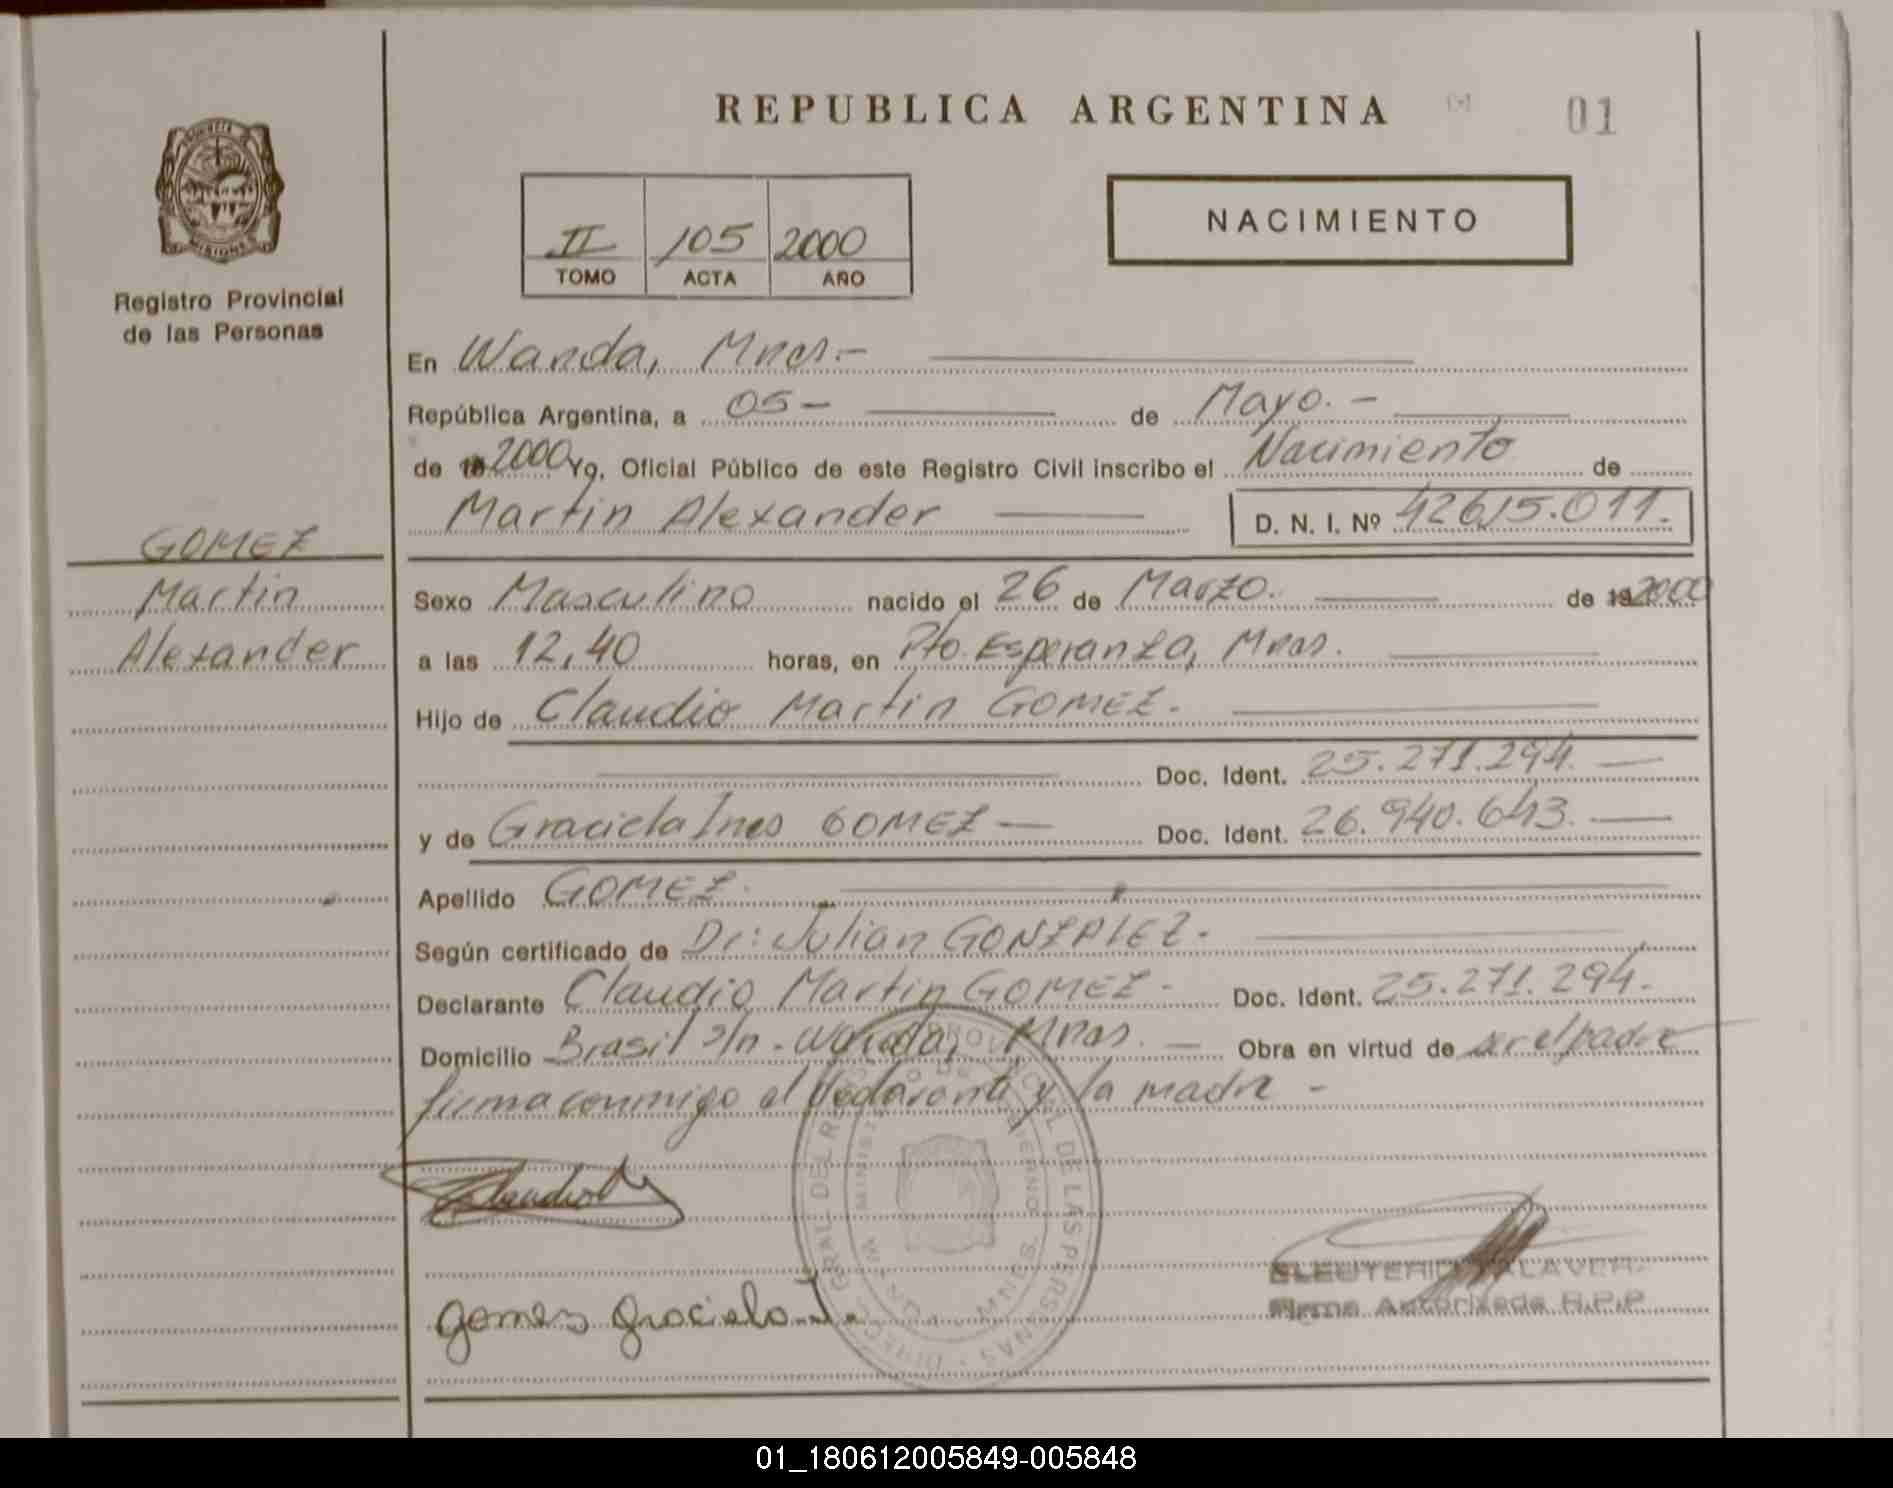 REPUBLICA ARGENTINA
01
Registro Provincial
de las Personas
II 105 2000
TOMO ACTA AÑO
NACIMIENTO
En Wanda, Mnes.-
República Argentina, a 05- de Mayo.-
de 2000 Yo, Oficial Público de este Registro Civil inscribo el Nacimiento de
Martin Alexander D. N. I. Nº 42615.011.
GOMEZ
Martin
Alexander
Sexo Masculino nacido el 26 de Marzo. de 19 2000
a las 12,40 horas, en Pto. Esperanza, Mnes.
Hijo de Claudio Martin GOMEZ.
Doc. Ident. 25.271.294.
y de Graciela Ines GOMEZ Doc. Ident. 26.940.643.
Apellido GOMEZ.
Según certificado de Dr: Julian GONZALEZ.
Declarante Claudio Martin GOMEZ- Doc. Ident. 25.271.294.
Domicilio Brasil s/n-Wanda, Mnes. Obra en virtud de ser el padre
firma conmigo el declarante y la madre -
DIRECC. GRAL. DEL REG. PROVINCIAL DE LAS PERSONAS
MINISTERIO DE GOBIERNO
WANDA - MNES.
gomes graciela I.
ELEUTERIO TALAVER
Firma Autorizada R.P.P
01_180612005849-005848